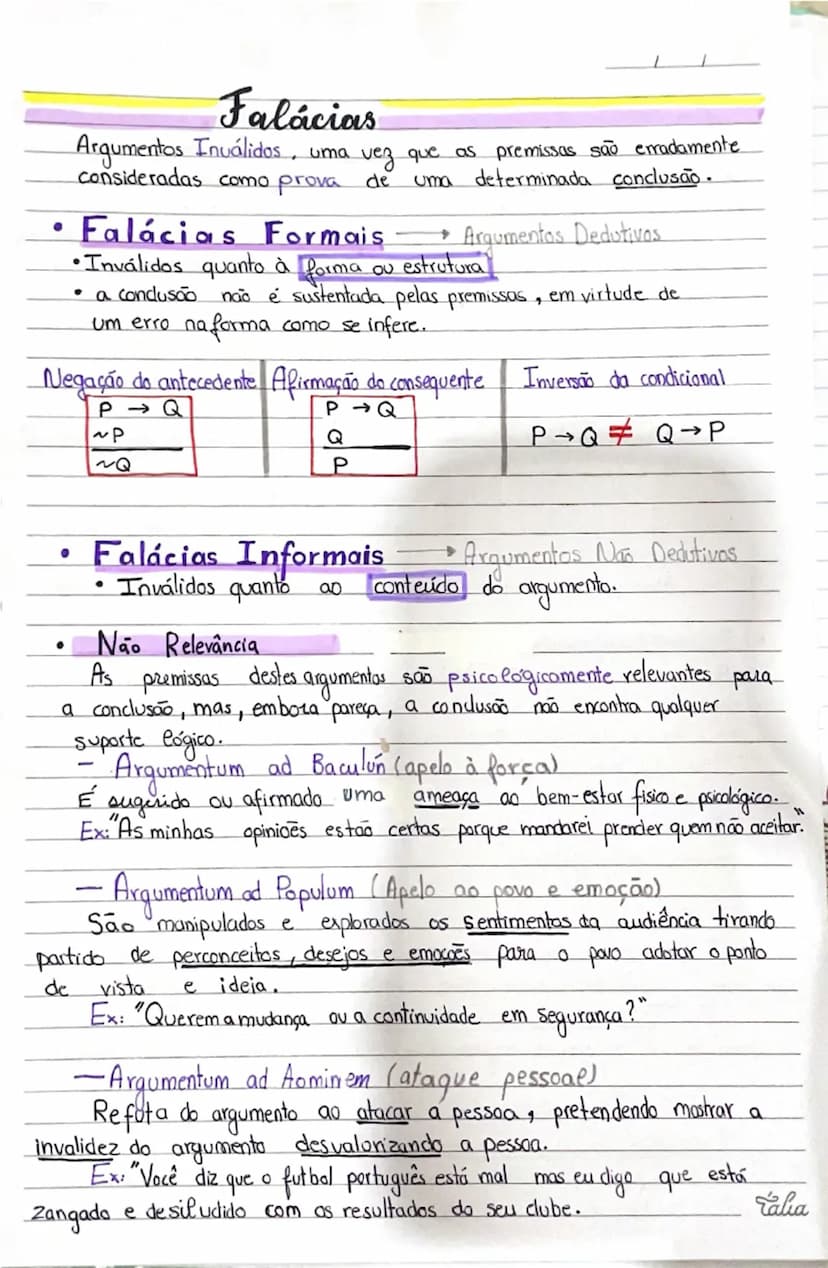 Falácias
Argumentos Inválidos, uma vez que as premissas são erradamente
consideradas como prova de uma determinada conclusão.
• Falácias Formais → Argumentos Dedutivos
• Inválidos quanto à forma ou estrutura
• a conclusão não é sustentada pelas premissas, em virtude de
um erro na forma como se infere.
Negação do antecedente | Afirmação do consequente | Inversão da condicional
P → Q
~P
~Q
P → Q
Q
P
P → Q ≠ Q → P
• Falácias Informais → Argumentos Não Dedutivos
• Inválidos quanto ao conteúdo do argumento.
• Não Relevância
As premissas destes argumentos são psicológicamente relevantes para
a conclusão, mas, embora pareça, a conclusão não encontra qualquer
suporte lógico.
- Argumentum ad Baculún (apelo à força)
É sugerido ou afirmado uma ameaça ao bem-estar físico e psicológico.
Ex: "As minhas opiniões estão certas porque mandarei prender quem não aceitar."
- Argumentum ad Populum (Apelo ao povo e emoção)
São manipulados e explorados os sentimentos da audiência tirando
partido de perconceitos, desejos e emoções para o povo adotar o ponto
de vista e ideia.
Ex: "Querem a mudança ou a continuidade em segurança?"
- Argumentum ad Aominem (ataque pessoal)
Refuta do argumento ao atacar a pessoa, pretendendo mostrar a
invalidez do argumento desvalorizando a pessoa.
Ex: "Você diz que o futbol português está mal mas eu digo que está
zangado e desiludido com os resultados do seu clube.
Tália